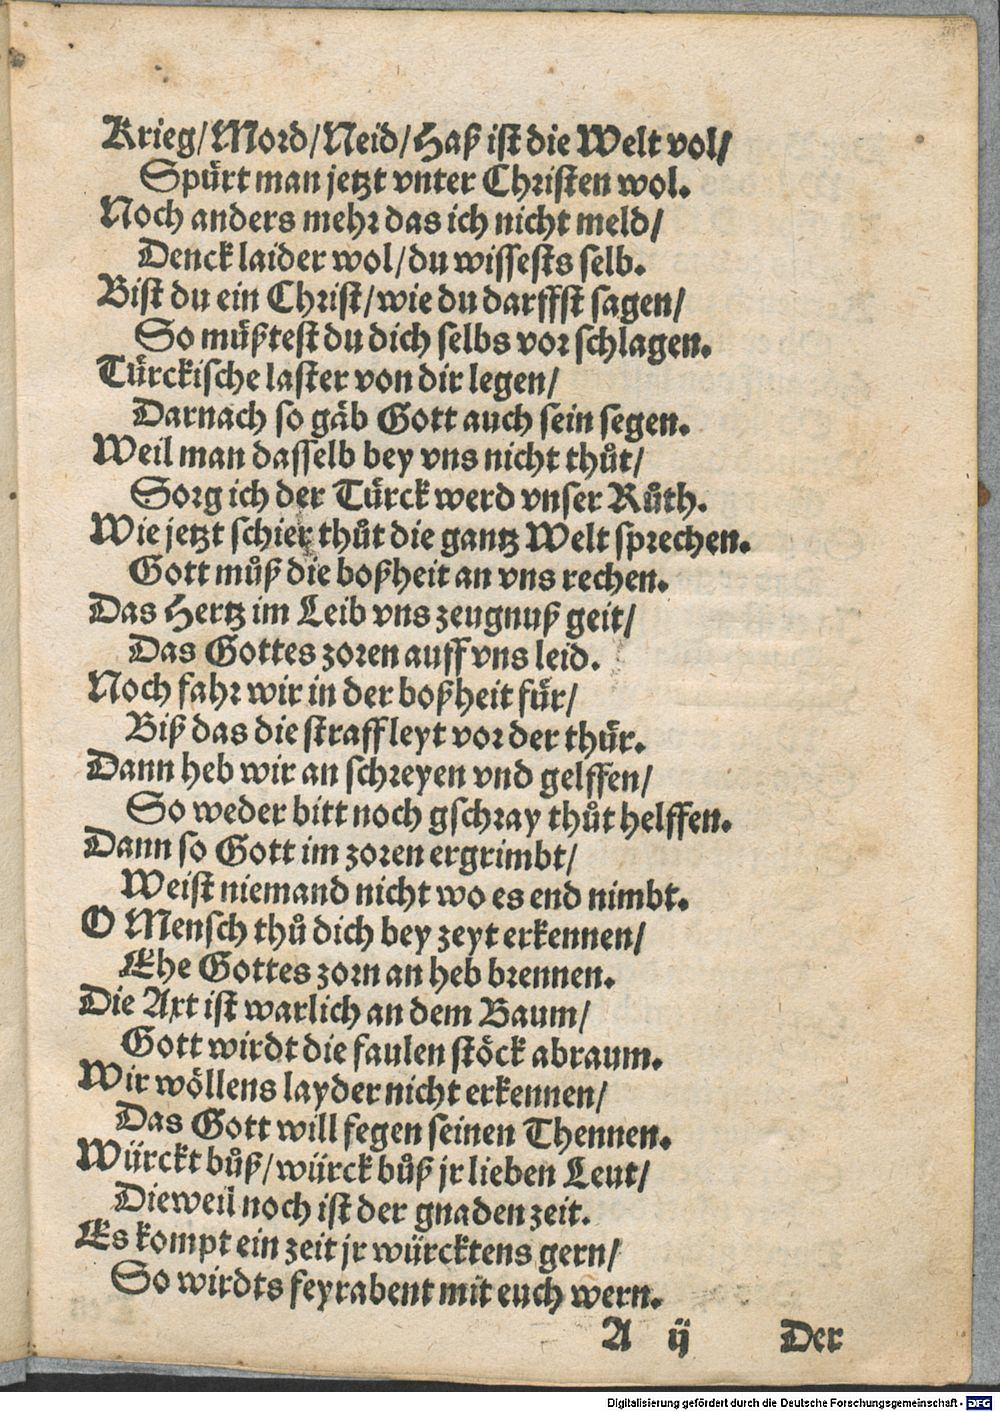 Krieg/Mord/Neid/Haß ist die Welt vol/
Spürt man jetzt vnter Christen wol.
Noch anders mehr das ich nicht meld/
Denck laider wol/du wissests selb.
Bist du ein Christ/wie du darffst sagen/
So müßtest du dich selbs vor schlagen.
Türckische laster von dir legen/
Darnach so gäb Gott auch sein segen.
Weil man dasselb bey vns nicht thůt/
Sorg ich der Türck werd vnser Růth.
Wie jetzt schier thůt die gantz Welt sprechen.
Gott můß die boßheit an vns rechen.
Das Hertz im Leib vns zeugnuß geit/
Das Gottes zoren auff vns leid.
Noch fahr wir in der boßheit für/
Biß das die straff leyt vor der thür.
Dann heb wir an schreyen vnd gelffen/
So weder bitt noch gschray thůt helffen.
Dann so Gott im zoren ergrimbt/
Weist niemand nicht wo es end nimbt.
O Mensch thů dich bey zeyt erkennen/
Ehe Gottes zorn an heb brennen.
Die Axt ist warlich an dem Baum/
Gott wirdt die faulen stöck abraum.
Wir wöllens layder nicht erkennen/
Das Gott will fegen seinen Thennen.
Würckt bůß/würck bůß jr lieben Leut/
Dieweil noch ist der gnaden zeit.
Es kompt ein zeit jr würcktens gern/
So wirdts feyrabent mit euch wern.
A ij Der
Digitalisierung gefördert durch die Deutsche Forschungsgemeinschaft - DFG